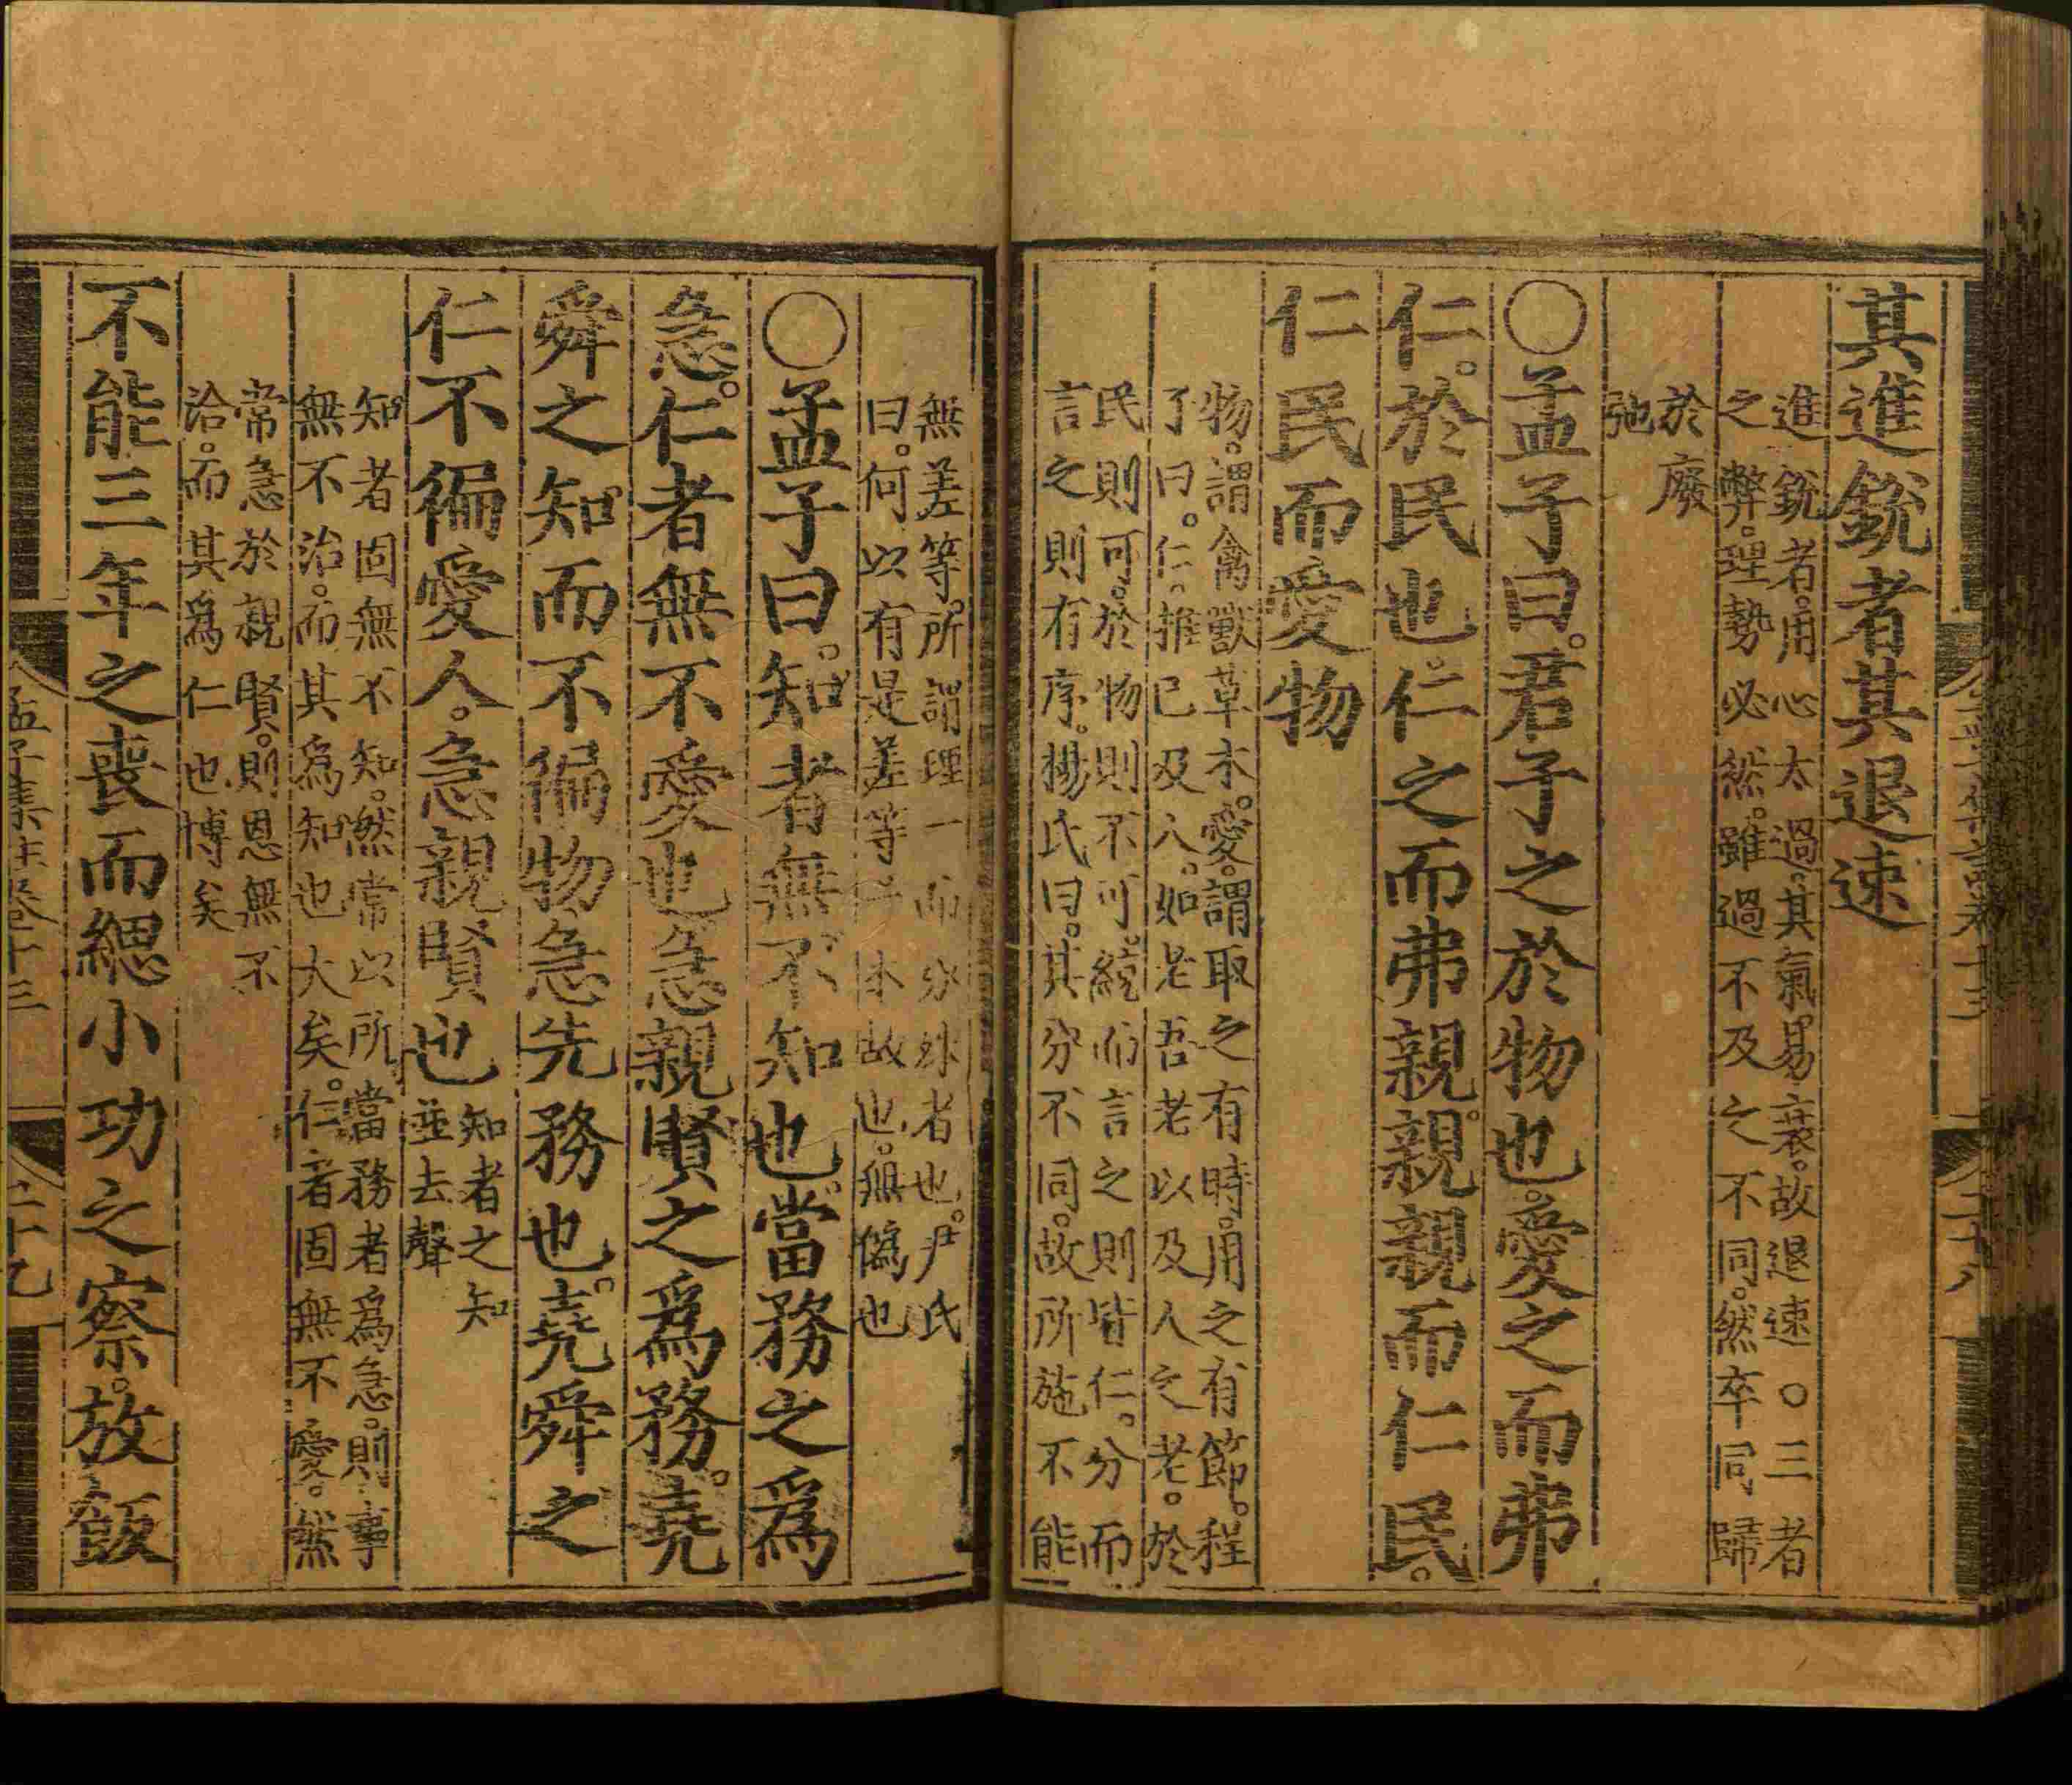 其進銳者其退速
進銳者。用心太過。其氣易衰。故退速○三者
之弊。理勢必然。雖過不及之不同。然卒同歸
於廢
弛
○孟子曰。君子之於物也。愛之而弗
仁。於民也。仁之而弗親。親親而仁民。
仁民而愛物
物。謂禽獸草木。愛。謂取之有時。用之有節。程
子曰。仁。推己及人。如老吾老以及人之老。於
民則可。於物則不可。統而言之則皆仁。分而
言之則有序。楊氏曰。其分不同。故所施不能
無差等。所謂理一而分殊者也。尹氏
曰。何以有是差等一本故也。無僞也
○孟子曰。知者無不知也。當務之爲
急。仁者無不愛也急親賢之爲務。堯
舜之知而不徧物急先務也。堯舜之
仁不徧愛人。急親賢也
知者之知
並去聲
知者固無不知。然常以所當務者爲急。則事
無不治。而其爲知也大矣。仁者固無不愛。然
常急於親賢。則恩無不
洽。而其爲仁也博矣
不能三年之喪而緦小功之察。放飯
孟子集註卷十三 二十九